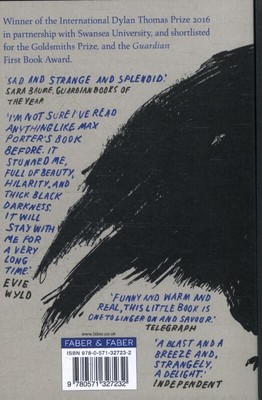 Winner of the International Dylan Thomas Prize 2016
in partnership with Swansea University, and shortlisted
for the Goldsmiths Prize, and the Guardian
First Book Award.
'SAD AND STRANGE AND SPLENDID.'
SARA BAUME, GUARDIAN BOOKS OF
THE YEAR
'I'M NOT SURE I'VE READ
ANYTHING LIKE MAX
PORTER'S BOOK
BEFORE. IT
STUNNED ME,
FULL OF BEAUTY,
HILARITY, AND
THICK BLACK
DARKNESS.
IT WILL
STAY WITH
ME FOR
A VERY
LONG
TIME.'
EVIE
WYLD
'FUNNY AND WARM AND
REAL, THIS LITTLE BOOK IS
ONE TO LINGER ON AND SAVOUR.'
TELEGRAPH
'A BLAST AND A
BREEZE AND,
STRANGELY,
A DELIGHT.'
INDEPENDENT
www.faber.co.uk
FABER & FABER
ISBN 978-0-571-32723-2
9 780571 327232